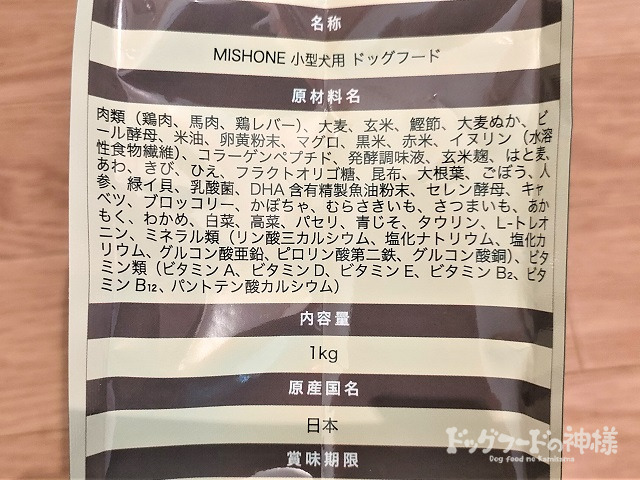 名称
MISHONE 小型犬用 ドッグフード
原材料名
肉類（鶏肉、馬肉、鶏レバー）、大麦、玄米、鰹節、大麦ぬか、ビ
ール酵母、米油、卵黄粉末、マグロ、黒米、赤米、イヌリン（水溶
性食物繊維）、コラーゲンペプチド、発酵調味液、玄米麹、はと麦、
あわ、きび、ひえ、フラクトオリゴ糖、昆布、大根葉、ごぼう、人
参、緑イ貝、乳酸菌、DHA 含有精製魚油粉末、セレン酵母、キャ
ベツ、ブロッコリー、かぼちゃ、むらさきいも、さつまいも、あか
もく、わかめ、白菜、高菜、パセリ、青じそ、タウリン、L-トレオ
ニン、ミネラル類（リン酸三カルシウム、塩化ナトリウム、塩化カ
リウム、グルコン酸亜鉛、ピロリン酸第二鉄、グルコン酸銅）、ビタ
ミン類（ビタミン A、ビタミン D、ビタミン E、ビタミン B₂、ビタ
ミン B₁₂、パントテン酸カルシウム）
内容量
1kg
原産国名
日本
ドッグフードの神様
Dog food no kamisama
賞味期限